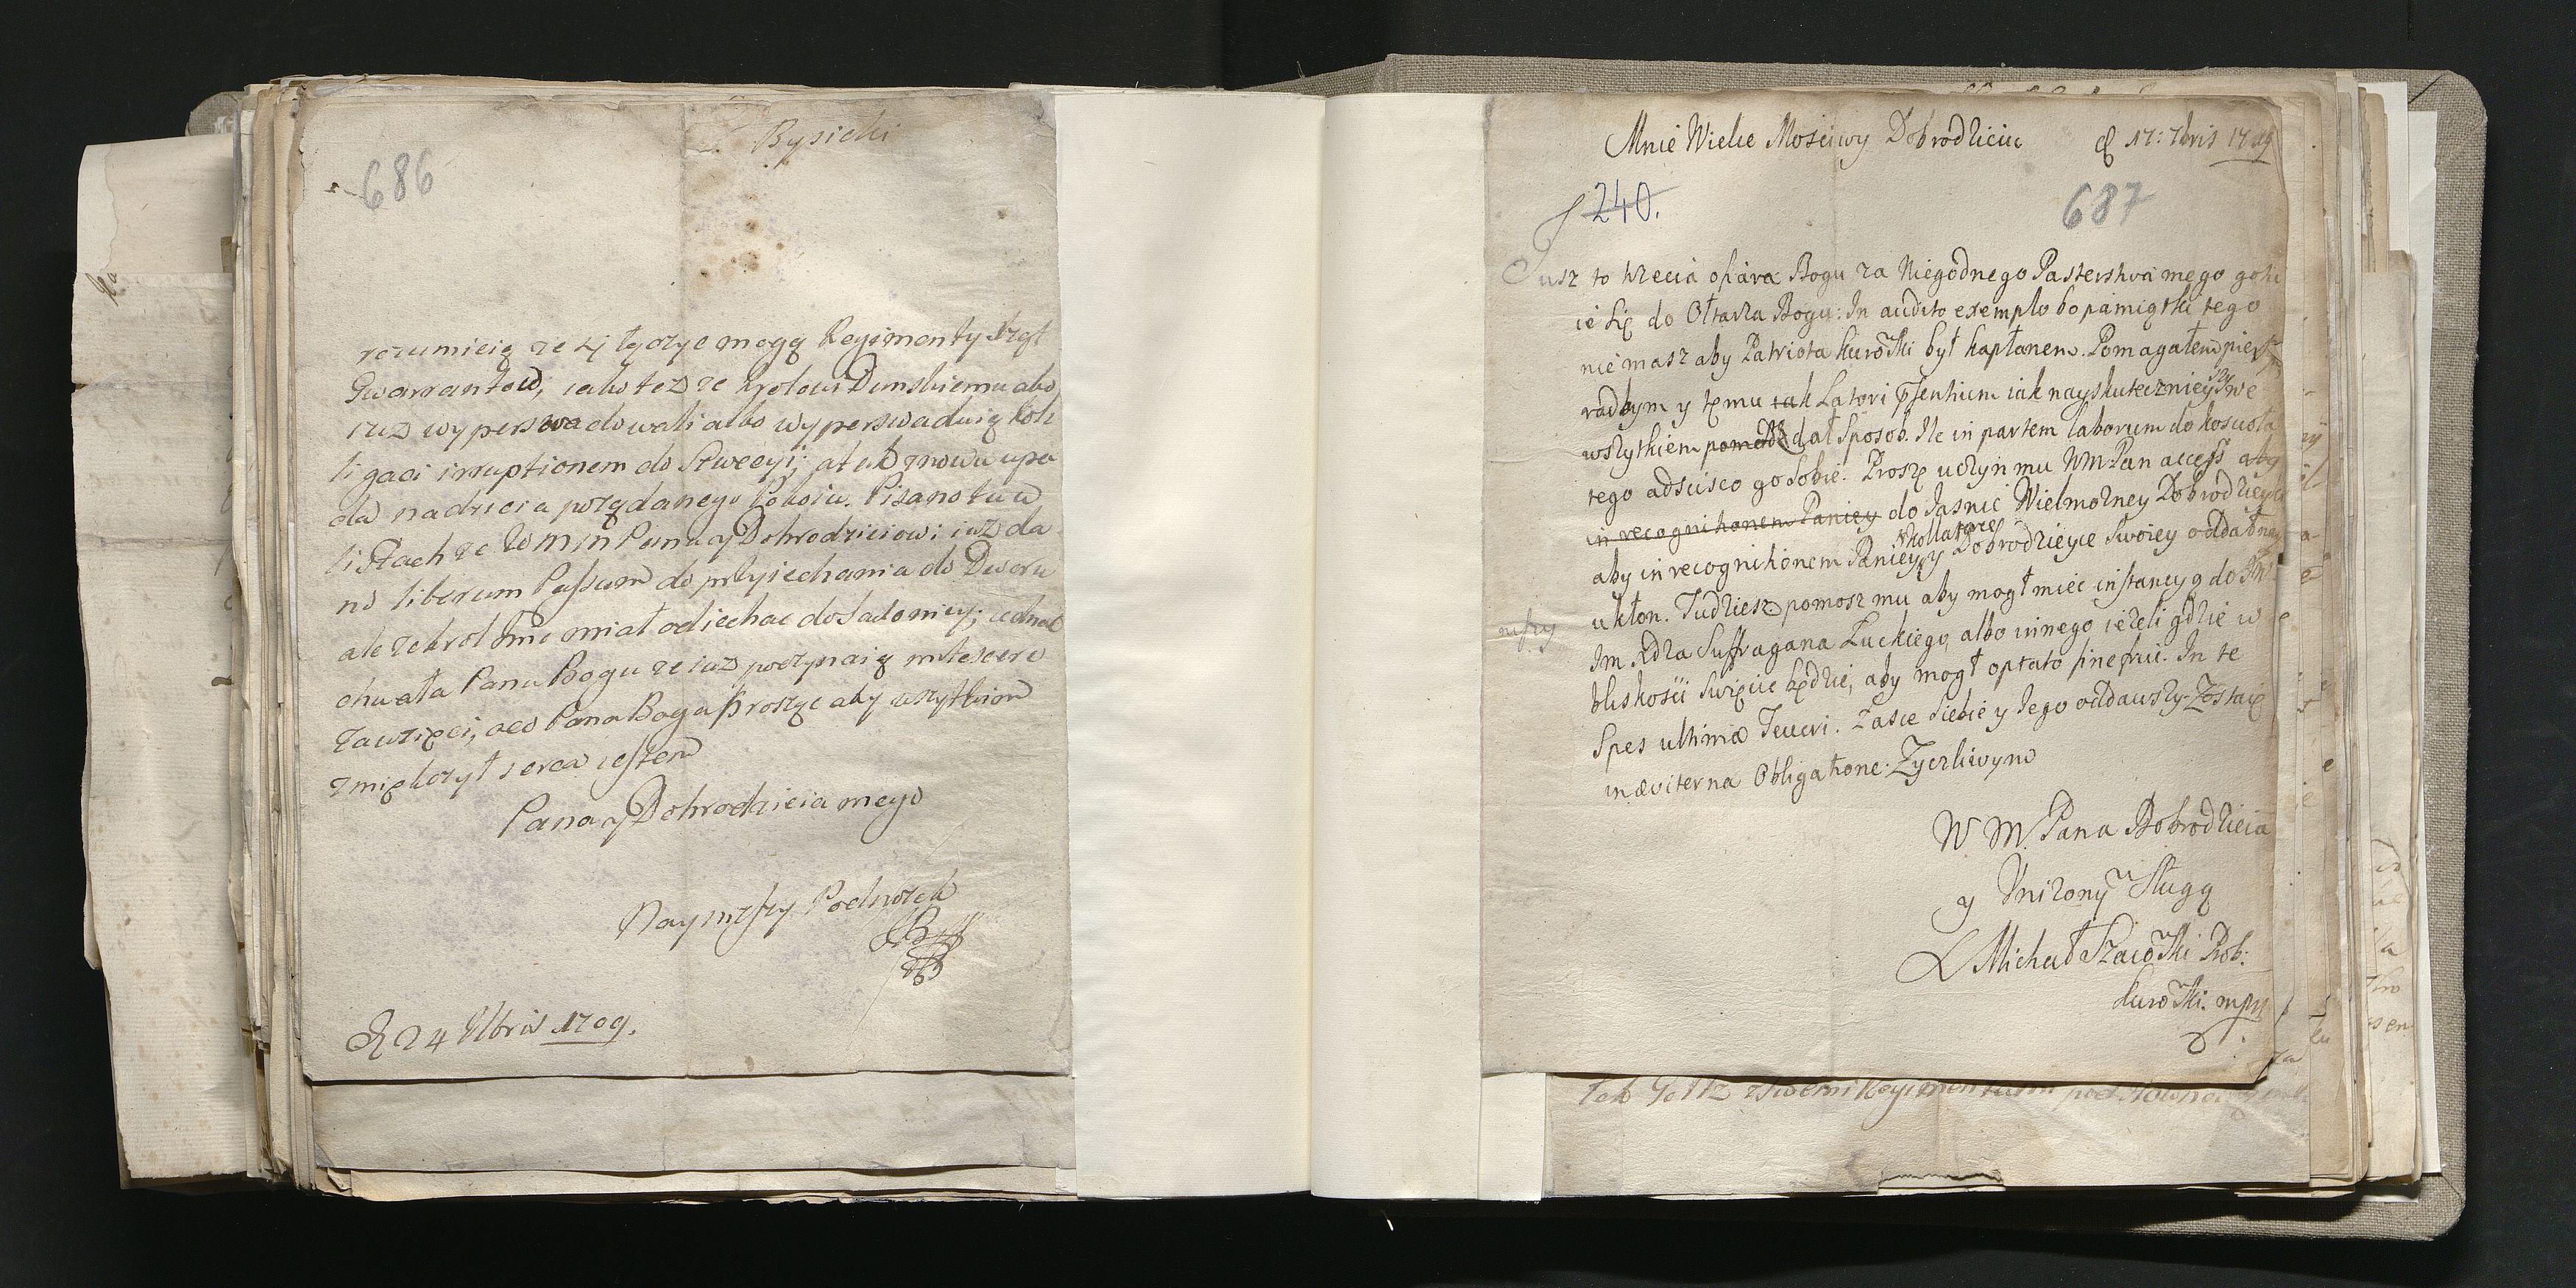 Bysicki
686
rozumieią ze sj łęczyc mogą Regimenty
Gwarrantow, iako tez ze krolowi Dunskiemu abo
iuz wyperswadowali albo wyperswaduią kol
ligaci irruptionem do Szwecyi; ał ab znowu upa
da nadzieia pożądanego Pokoiu. Pisano tu w
listach ze WMM Panu y Dobrodzieiowi iuz da
no liberum Passum do przyiechania do Dworu
ale ze krol Jmc miał odiechac do Sadomiry; iednak
chwała Panu Bogu ze iuz poczynaią mitescere
zawzięci, aco Pana Boga proszę aby wszytkiem
zmiękczył serca iestem
Pana y Dobrodzieia mego
Naymszy Podnozek
D 24 Xbris 1709.
Mnie Wielce Mosciwy Dobrodzieiu D 17: 7bris 1709
240.
687
Jusz to trzecia ofiara Bogu za Niegodnego Pasterstwa mego gotu
ie się do Ołtarza Bogu: In audito exemplo bo pamiątki tego
nie masz aby Patriota kurowski był kapłanem. Pomagałem
radbym y temu tak Latori pñsentium iak nayskuteczniey we
wszytkiem pomodz dał sposob. Ile in partem laborum do koscioła
tego adscisco go sobie. Proszę uczyn mu WM Pan access aby
in recognitionem Paniey do Jasnie Wielmozney Dobrodzieyce
aby in recognitionem Paniey y kollatorce Dobrodzieyce swoiey oddał
ukłon. Tudziesz pomosz mu aby mogł miec instancyą do
Im Xdza Suffragana Łuckiego, albo innego iezeli gdzie w
bliskosci swięcic będzie, aby mogł optato fine frui. In te
spes ultima Teucri. Łasce siebie y Jego oddawszy Zostaię
in æviterna Obligatione. Zyczliwym
W M. Pana Dobrodzieia
y Unizonym Sługą
X Michał Szacowski Prob:
kurowski. mpp
mpp
Tak Goltz z swemi Regimentami pod Rowne